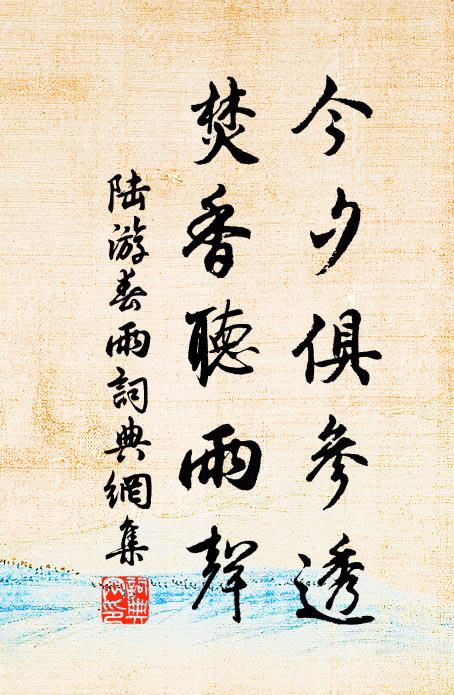 今夕俱參透
焚香聽雨聲
陸游春雨詞典網集